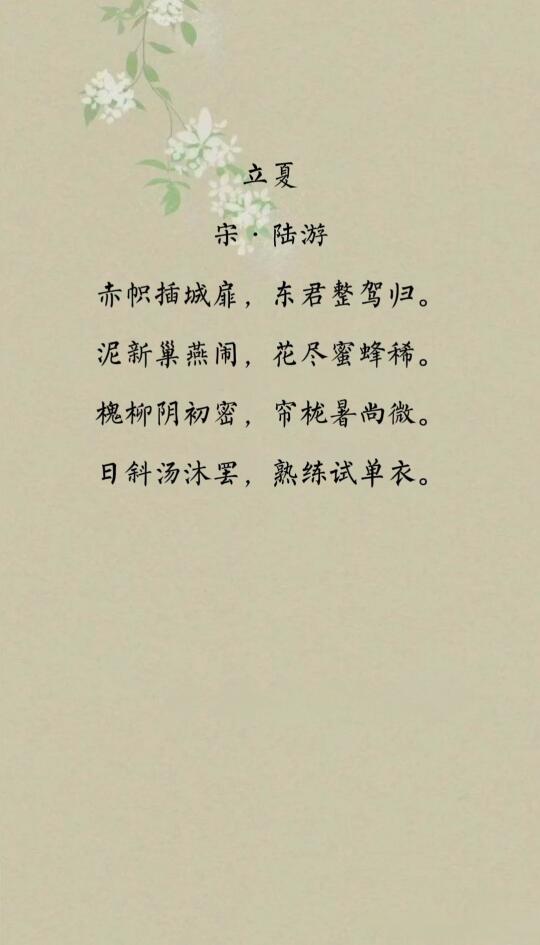 立夏
宋·陆游
赤帜插城扉，东君整驾归。
泥新巢燕闹，花尽蜜蜂稀。
槐柳阴初密，帘栊暑尚微。
日斜汤沐罢，熟练试单衣。